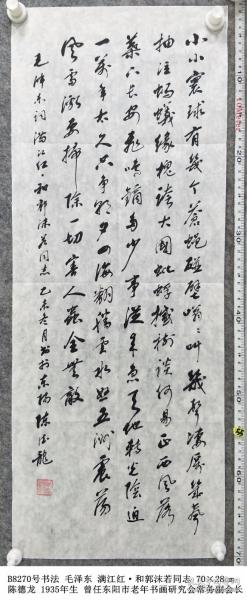 小小寰球有幾个蒼蝇碰壁嗡〻叫幾声凄厉幾声
抽泣蚂蟻缘槐誇大國蚍蜉撼樹談何易正西風落
葉下长安飛鳴镝多少事從来急天地转光陰迫
一萬年太久只争朝夕四海翻腾雲水怒五洲震荡
風雷激要掃除一切害人蟲全無敵
毛泽东词满江红·和郭沫若同志乙未冬月书於东阳陈德龙
B8270号书法 毛泽东 满江红·和郭沫若同志 70×28cm
陈德龙 1935年生 曾任东阳市老年书画研究会常务副会长